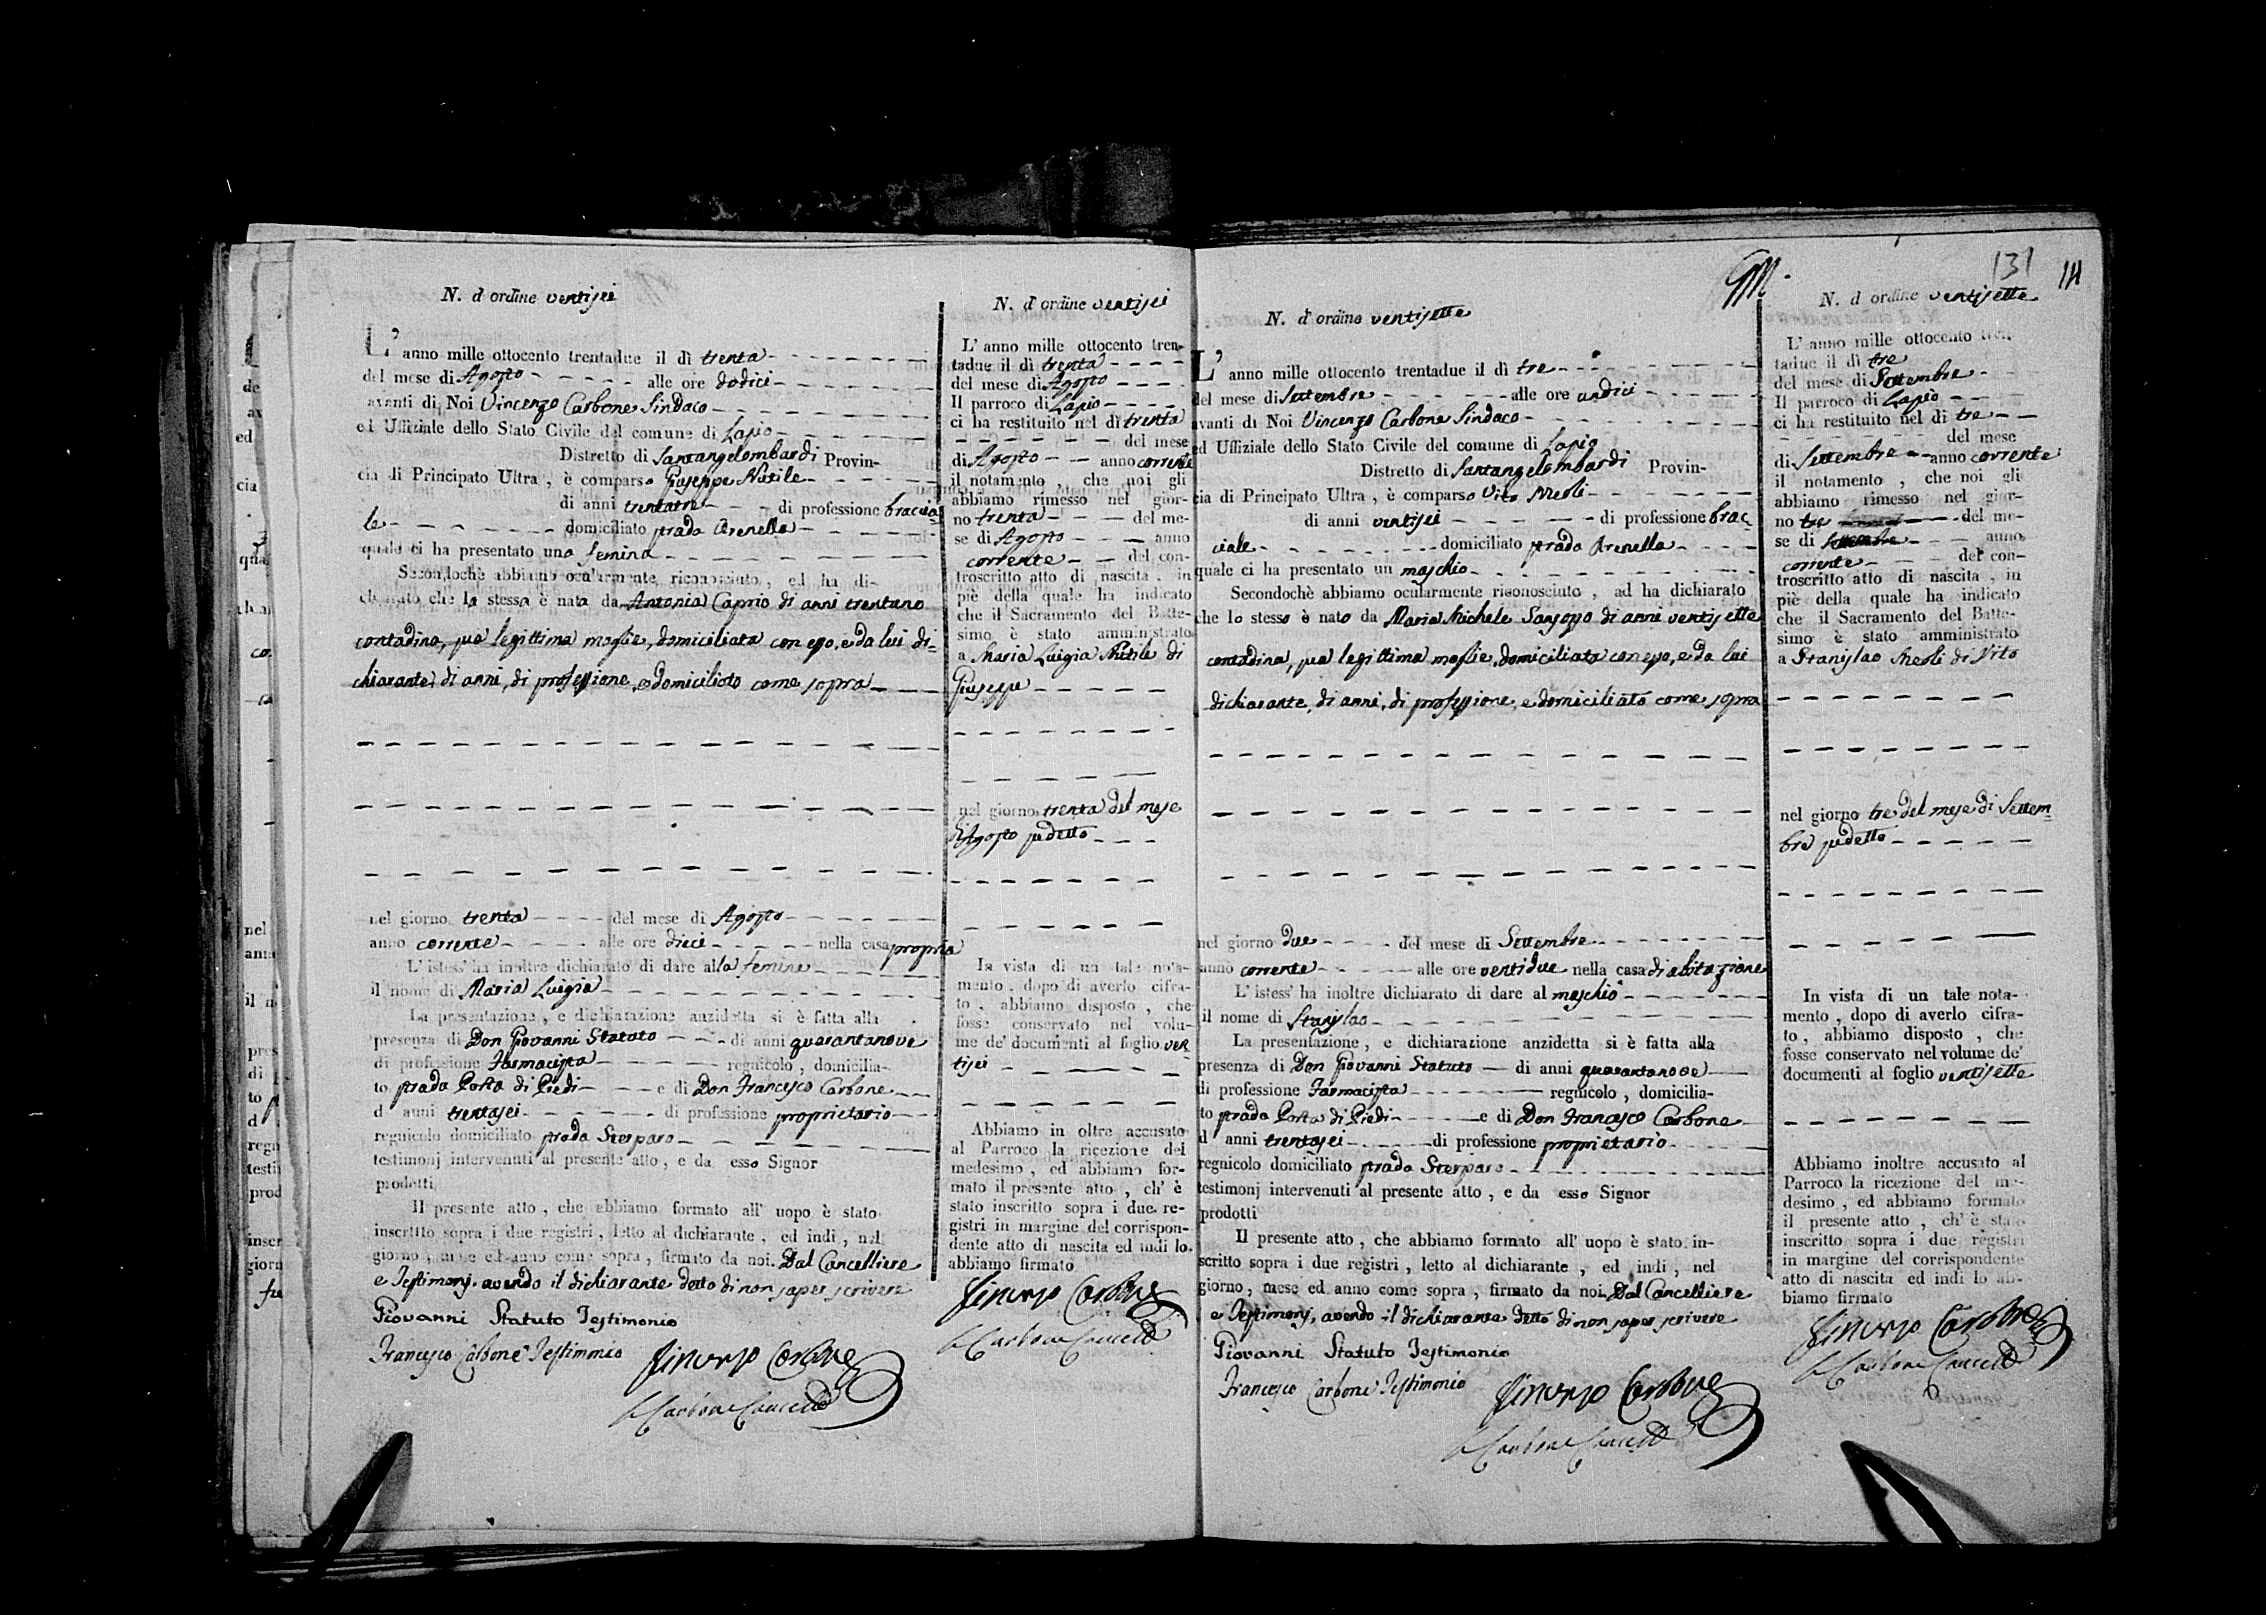 N. d'ordine ventisei
L'anno mille ottocento trentadue il dì trenta
del mese di Agosto alle ore dodici
avanti di Noi Vincenzo Carbone Sindaco
ed Uffiziale dello Stato Civile del comune di Lapio
Distretto di Santangelombardi Provin-
cia di Principato Ultra, è comparso Giuseppe Nutile
di anni trentatre di professione braccia
le domiciliato strada Arenella
quale ci ha presentato una femina
Secondochè abbiamo ocularmente riconosciuto, ed ha di-
chiarato che la stessa è nata da Antonia Caprio di anni trentuno
contadina, sua legittima moglie, domiciliata con esso, e da lui di=
chiarante, di anni, di professione, e domiciliato come sopra
nel giorno trenta del mese di Agosto
anno corrente alle ore dieci nella casa propria
L'istess' ha inoltre dichiarato di dare alla femina
il nome di Maria Luigia
La presentazione, e dichiarazione anzidetta si è fatta alla
presenza di Don Giovanni Statuto di anni quarantanove
di professione Farmacista regnicolo, domicilia-
to strada Porta di Piedi e di Don Francesco Carbone
d anni trentasei di professione proprietario
regnicolo domiciliato strada Sterparo
testimonj intervenuti al presente atto, e da esso Signor
prodotti
Il presente atto, che abbiamo formato all' uopo è stato
inscritto sopra i due registri, letto al dichiarante, ed indi, nel
giorno, mese ed anno come sopra, firmato da noi. Dal Cancelliere
e Testimonj, avendo il dichiarante detto di non saper scrivere
Giovanni Statuto Testimonio
Francesco Carbone Testimonio Vincenzo Carbone
Carbone Cancellˢ
N. d'ordine ventisei
L'anno mille ottocento tren-
tadue il dì trenta
del mese di Agosto
Il parroco di Lapio
ci ha restituito nel dì trenta
del mese
di Agosto anno corrente
il notamento, che noi gli
abbiamo rimesso nel gior-
no trenta del me-
se di Agosto anno
corrente del con-
troscritto atto di nascita, in
piè della quale ha indicato
che il Sacramento del Batte-
simo è stato amministrato
a Maria Luigia Nutile di
Giuseppe
nel giorno trenta del mese
di Agosto sudetto
In vista di un tale nota-
mento, dopo di averlo cifra-
to, abbiamo disposto, che
fosse conservato nel volu-
me de' documenti al foglio ven
tisei
Abbiamo in oltre accusato
al Parroco la ricezione del
medesimo, ed abbiamo for-
mato il presente atto, ch' è
stato inscritto sopra i due re-
gistri in margine del corrispon-
dente atto di nascita ed indi lo
abbiamo firmato
Vincenzo Carbone
Carbone Cancellˢ
131
N. d'ordine ventisette
L'anno mille ottocento trentadue il dì tre
del mese di Settembre alle ore undici
avanti di Noi Vincenzo Carbone Sindaco
ed Uffiziale dello Stato Civile del comune di Lapio
Distretto di Santangelombardi Provin-
cia di Principato Ultra, è comparso Vito Meoli
di anni ventisei di professione brac
ciale domiciliato strada Arenella
quale ci ha presentato un maschio
Secondochè abbiamo ocularmente riconosciuto, ad ha dichiarato
che lo stesso è nato da Maria Michele Sansosso di anni ventisette
contadina, sua legittima moglie, domiciliata con esso, e da lui
dichiarante, di anni, di professione, e domiciliato come sopra
nel giorno due del mese di Settembre
anno corrente alle ore ventidue nella casa di abitazione
L'istess' ha inoltre dichiarato di dare al maschio
il nome di Stanislao
La presentazione, e dichiarazione anzidetta si è fatta alla
presenza di Don Giovanni Statuto di anni quarantanove
di professione Farmacista regnicolo, domicilia-
to strada Porta di Piedi e di Don Francesco Carbone
d anni trentasei di professione proprietario
regnicolo domiciliato strada Sterparo
testimonj intervenuti al presente atto, e da esso Signor
prodotti
Il presente atto, che abbiamo formato all' uopo è stato in-
scritto sopra i due registri, letto al dichiarante, ed indi, nel
giorno, mese ed anno come sopra, firmato da noi Dal Cancelliere
e Testimonj, avendo il dichiarante detto di non saper scrivere
Giovanni Statuto Testimonio
Francesco Carbone Testimonio Vincenzo Carbone
Carbone Cancellˢ
N. d'ordine ventisette
L'anno mille ottocento tren-
tadue il dì tre
del mese di Settembre
Il parroco di Lapio
ci ha restituito nel dì tre
del mese
di Settembre anno corrente
il notamento, che noi gli
abbiamo rimesso nel gior-
no tre del me-
se di Settembre anno
corrente del con-
troscritto atto di nascita, in
piè della quale ha indicato
che il Sacramento del Batte-
simo è stato amministrato
a Stanislao Meoli di Vito
nel giorno tre del mese di Settem=
bre sudetto
In vista di un tale nota-
mento, dopo di averlo cifra-
to, abbiamo disposto, che
fosse conservato nel volume de'
documenti al foglio ventisette
Abbiamo inoltre accusato al
Parroco la ricezione del me-
desimo, ed abbiamo formato
il presente atto, ch' è stato
inscritto sopra i due registri
in margine del corrispondente
atto di nascita ed indi lo ab-
biamo firmato
Vincenzo Carbone
Carbone Cancellˢ